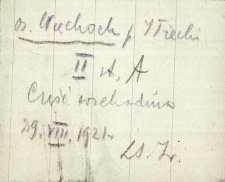 os. Wąchock p. Iłżecki
II A. A
Część wschodnia
29. VIII. 1921.